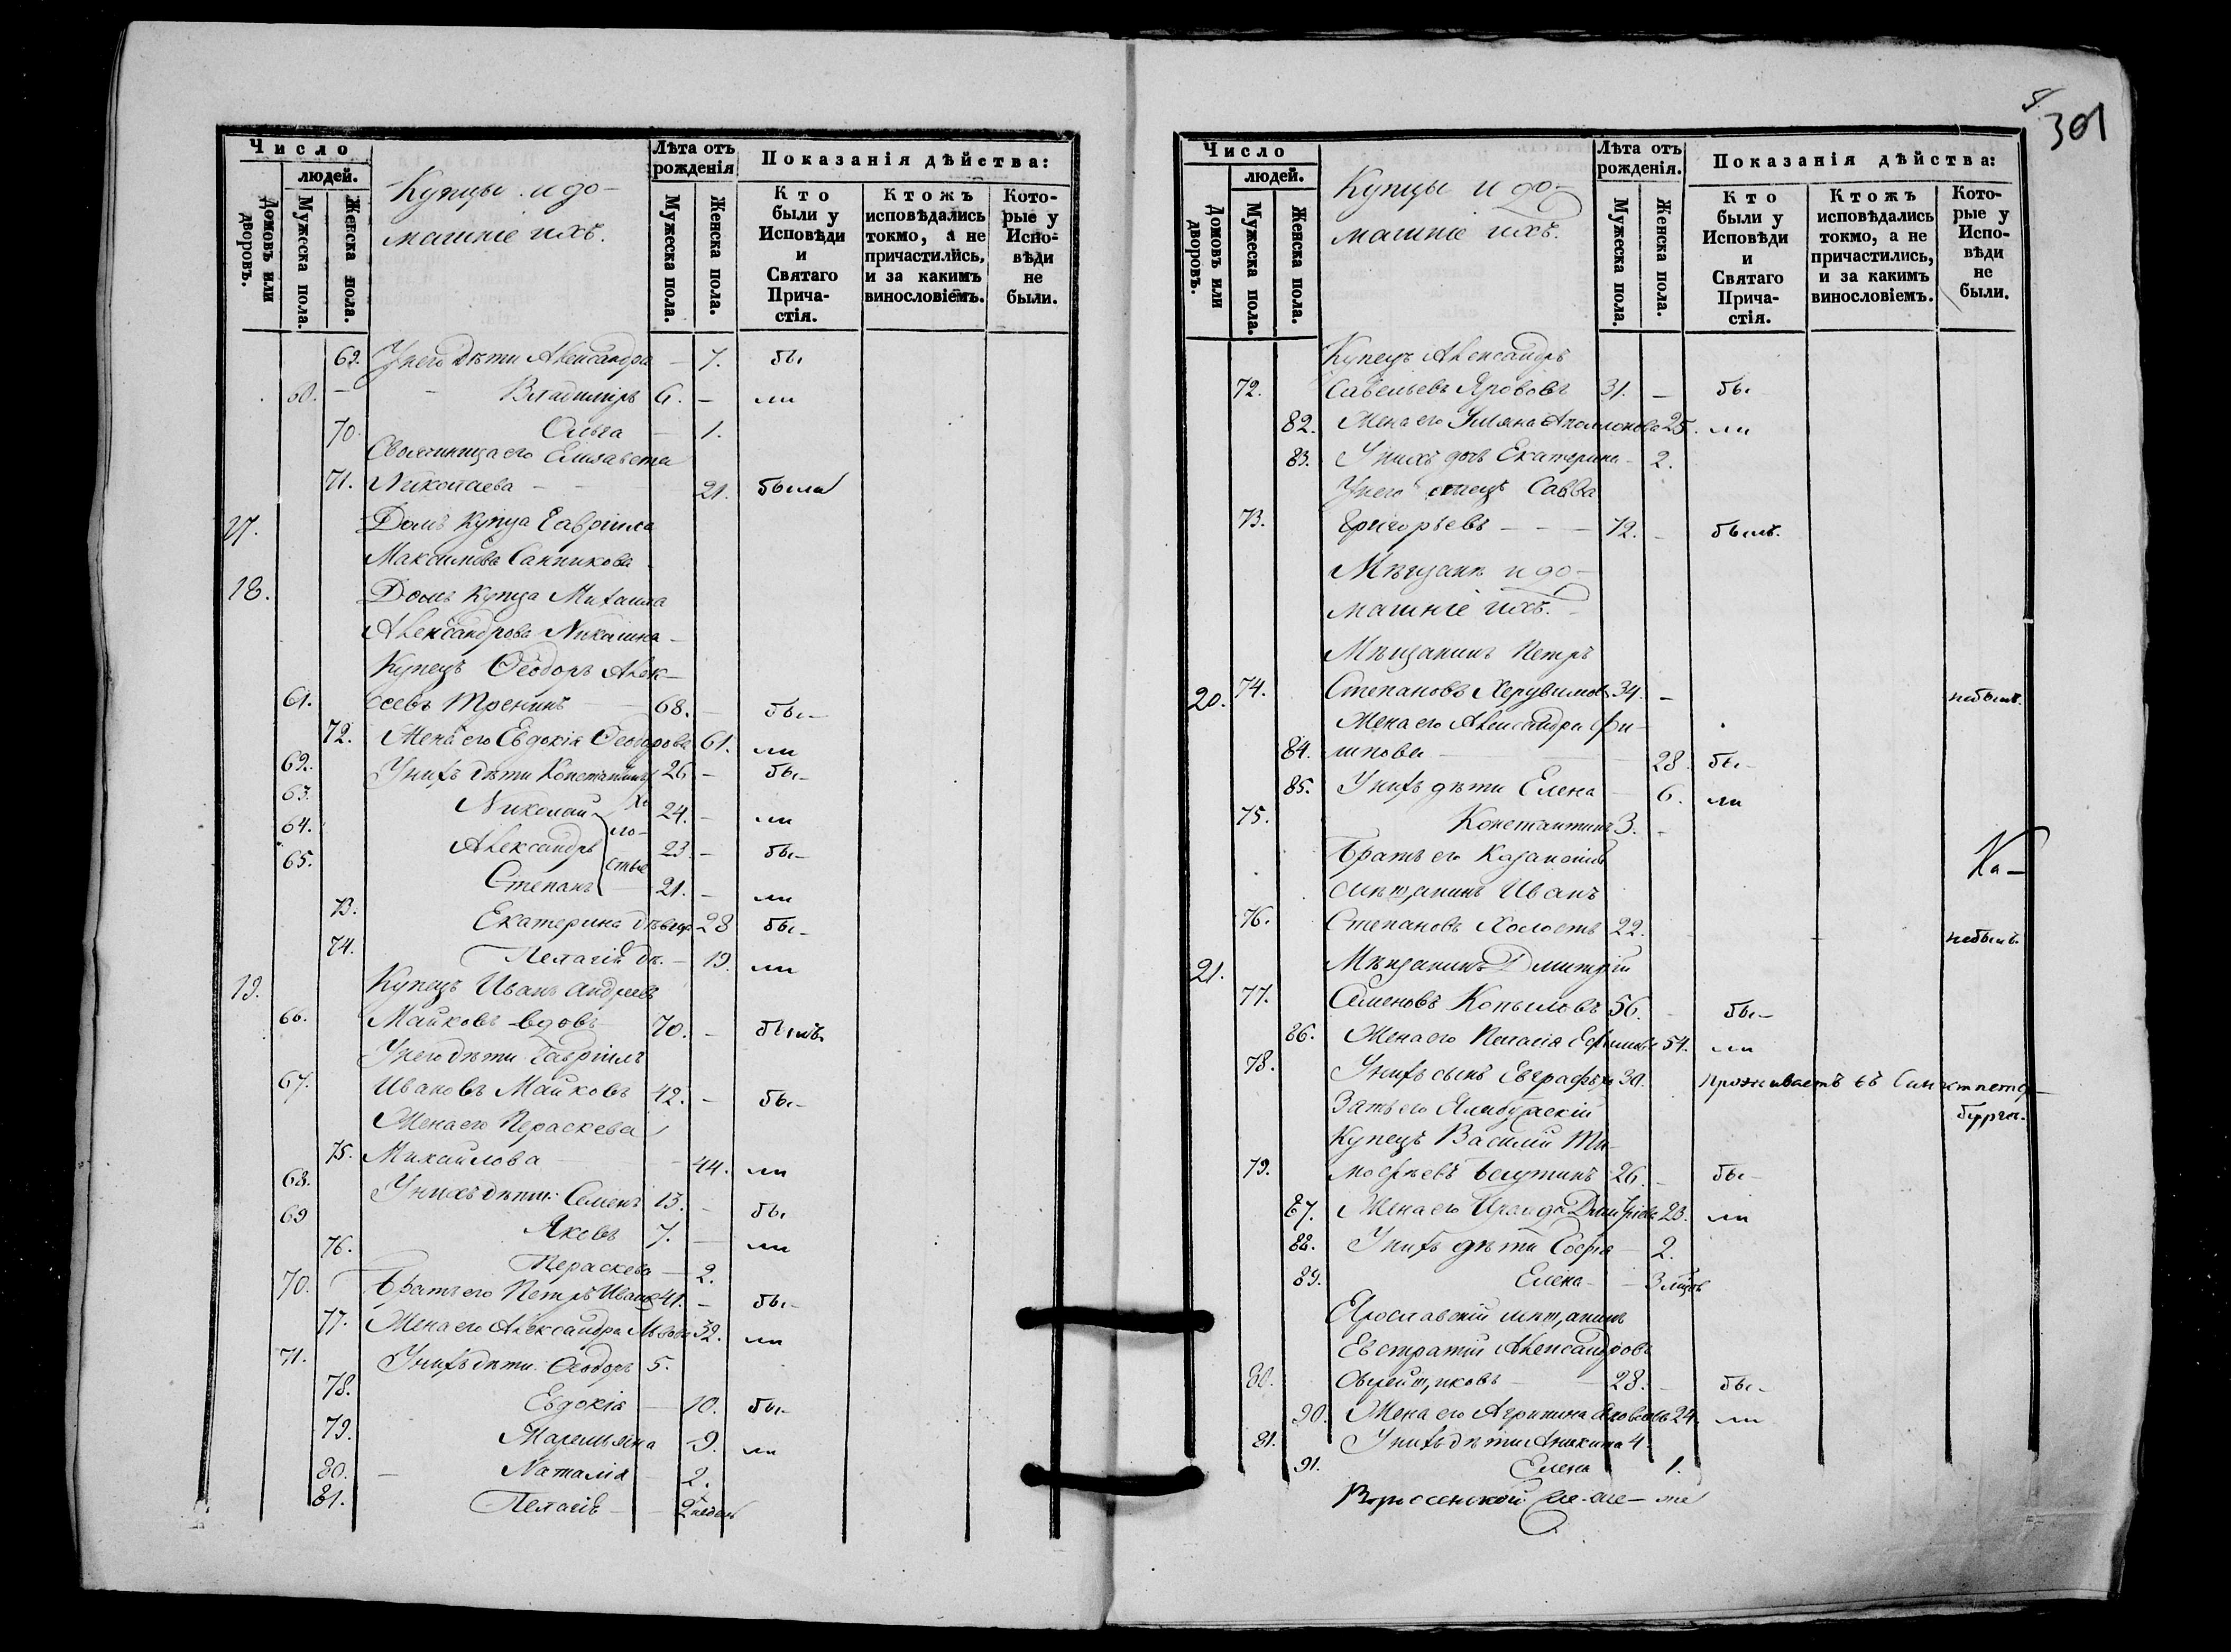 Число
людей.
Домовъ или дворовъ.
Мужеска пола.
Женска пола.
Купцы и до-
машніе ихъ.
Лѣта отъ рожденія
Мужеска пола.
Женска пола.
Показанія дѣйства:
Кто были у Исповѣди и Святаго Прича-стія.
Ктожъ исповѣдались токмо, а не причастились, и за какимъ винословіемъ.
Кото-рые у Испо-вѣди не были.
69. У него дѣти Александра — 7. бы
60. — Владиміръ 6. — ли
70. Ольга — 1.
Своячиница его Елизавета
71. Николаева — 21. была
17. Домъ Купца Гавріила
Максимова Санникова
18. Домъ Купца Михаила
Александрова
Купецъ Ѳеодоръ Алек-
61. сѣевъ Тренинъ 68. — бы-
72. Жена его Евдокія Ѳеодорова 61. ли
62. У нихъ дѣти Константинъ 26 — бы-
63. Николай Хо 24. — ли
64. Александръ ло- 23 — бы-
65. Степанъ стые 21. — ли
73. Екатерина дѣвица 28 бы-
74. Пелагія дѣ. — 19. ли
19. Купецъ Иванъ Андреевъ
66. Майковъ вдовъ 70. — былъ
У него дѣти Гавріилъ
67. Ивановъ Майковъ 42. — бы-
Жена его Параскева
75. Михайлова — 44. ли
68. У нихъ дѣти: Семенъ 13. — бы
69 Яковъ 7. — ли
76. Параскева — 2.
70. Братъ его Петръ Ивановъ 41. — бы-
77. Жена его Александра Львова 32. ли
71. У нихъ дѣти Ѳеодоръ 5.
78. Евдокія — 10. бы-
79. 9. ли
80. — Наталія 2.
81. Пелагія — 2 недѣль
5.
301
Число
людей.
Домовъ или дворовъ.
Мужеска пола.
Женска пола.
Купцы и до-
машніе ихъ.
Лѣта отъ рожденія.
Мужеска пола.
Женска пола.
Показанія дѣйства:
Кто были у Исповѣди и Святаго Прича-стія.
Ктожъ исповѣдались токмо, а не причастились, и за какимъ винословіемъ.
Кото-рые у Испо-вѣди не были.
Купецъ Александръ
72. Савельевъ 31. — бы
82. Жена его Ульяна Аполлонова 25. ли
83. У нихъ дочь Екатерина — 2.
У него отецъ Савва
73. Григорьевъ — — — 72. — былъ.
Мѣщане и до-
машніе ихъ.
Мѣщанинъ Петръ
20. 74. Степановъ Херувимовъ 34. — небылъ.
Жена его Александра Фи-
84. липова — 28. бы-
85. У нихъ дѣти Елена — 6. ли
75. Константинъ 3. —
Братъ его Казанскій
Ка-
мѣщанинъ Иванъ
76. Степановъ Холостъ 22. небылъ.
21. Мѣщанинъ Димитрій
77. Семеновъ Копыловъ 56. — бы-
86. Жена его Пелагія Ефимова 54. ли
78. У нихъ сынъ Евграфъ 30. проживаетъ въ Санктпетер-
бургѣ.
Зять его Елабужскій
Купецъ Василій Ти-
79. мофѣевъ 26. — бы-
87. Жена его Ираида Дмитріева 23. ли
88. У нихъ дѣти Софія — 2.
89. Елена — 3 мѣсяц
Ярославскій мѣщанинъ
Евстратій Александровъ
80. 28. — бы-
90. Жена его Агрипина Яковлева 24. ли
81. У нихъ дѣти 4.
91. Елена 1.